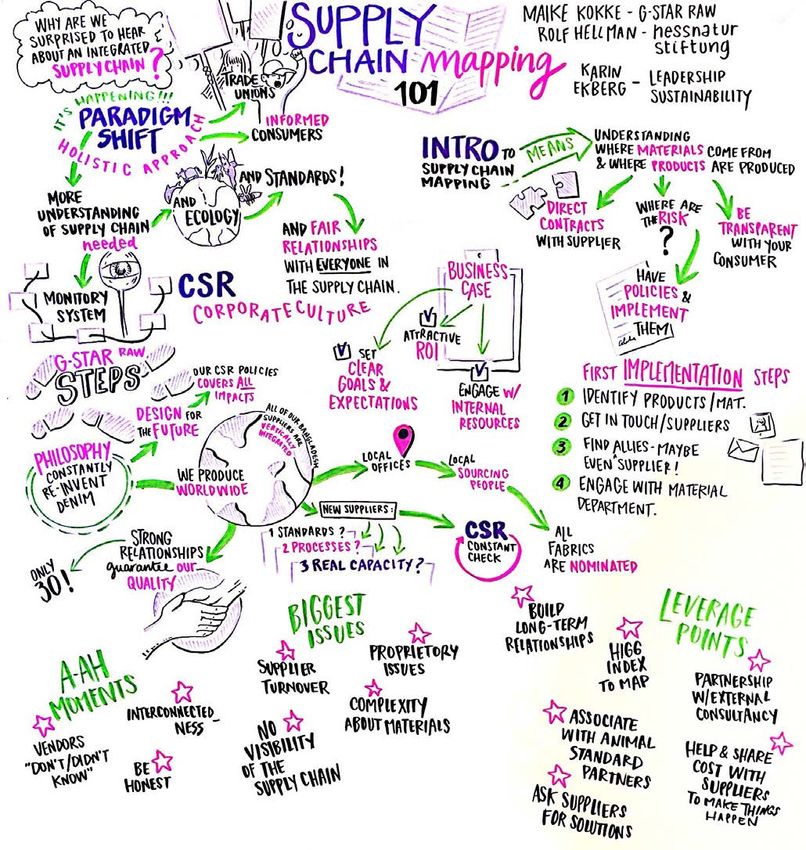 WHY ARE WE
SURPRISED TO HEAR
ABOUT AN INTEGRATED
SUPPLY CHAIN?
SUPPLY
CHAIN mapping
101
MAIKE KOKKE - G-STAR RAW
ROLF HELLMAN - hessnatur
stiftung
KARIN
EKBERG - LEADERSHIP
SUSTAINABILITY
IT'S HAPPENING!!!
PARADIGM
SHIFT
HOLISTIC APPROACH
TRADE
UNIONS
INFORMED
CONSUMERS
MORE
UNDERSTANDING
OF SUPPLY CHAIN
needed
AND
ECOLOGY
AND STANDARDS!
AND FAIR
RELATIONSHIPS
WITH EVERYONE IN
THE SUPPLY CHAIN.
MONITORY
SYSTEM
CSR
CORPORATE CULTURE
INTRO TO
SUPPLY CHAIN
MAPPING
MEANS
UNDERSTANDING
WHERE MATERIALS COME FROM
& WHERE PRODUCTS ARE PRODUCED
DIRECT
CONTRACTS
WITH SUPPLIER
WHERE ARE
THE RISK
?
BE
TRANSPARENT
WITH YOUR
CONSUMER
HAVE
POLICIES &
IMPLEMENT
THEM
BUSINESS
CASE
SET
CLEAR
GOALS &
EXPECTATIONS
ATTRACTIVE
ROI
ENGAGE W/
INTERNAL
RESOURCES
FIRST IMPLEMENTATION STEPS
1 IDENTIFY PRODUCTS/MAT.
2 GET IN TOUCH/SUPPLIERS
3 FIND ALLIES - MAYBE
EVEN SUPPLIER!
4 ENGAGE WITH MATERIAL
DEPARTMENT.
G-STAR RAW
STEPS
PHILOSOPHY
CONSTANTLY
RE-INVENT
DENIM
DESIGN FOR
THE FUTURE
OUR CSR POLICIES
COVERS ALL
IMPACTS
WE PRODUCE
WORLDWIDE
ALL OF OUR BANGLADESH
SUPPLIERS ARE
VERTICALLY
INTEGRATED
LOCAL
OFFICES
LOCAL
SOURCING
PEOPLE
ALL
FABRICS
ARE NOMINATED
NEW SUPPLIERS:
1 STANDARDS?
2 PROCESSES?
3 REAL CAPACITY?
CSR
CONSTANT
CHECK
STRONG
RELATIONSHIPS
guarantee our
QUALITY
ONLY
30!
A-AH
MOMENTS
VENDORS
"DON'T/DIDN'T
KNOW"
INTERCONNECTED
NESS
BE
HONEST
BIGGEST
ISSUES
SUPPLIER
TURNOVER
PROPRIETORY
ISSUES
NO
VISIBILITY
OF THE
SUPPLY CHAIN
COMPLEXITY
ABOUT MATERIALS
LEVERAGE
POINTS
BUILD
LONG-TERM
RELATIONSHIPS
HIGG
INDEX
TO MAP
PARTNERSHIP
W/EXTERNAL
CONSULTANCY
ASSOCIATE
WITH ANIMAL
STANDARD
PARTNERS
HELP & SHARE
COST WITH
SUPPLIERS
TO MAKE THINGS
HAPPEN
ASK SUPPLIERS
FOR SOLUTIONS